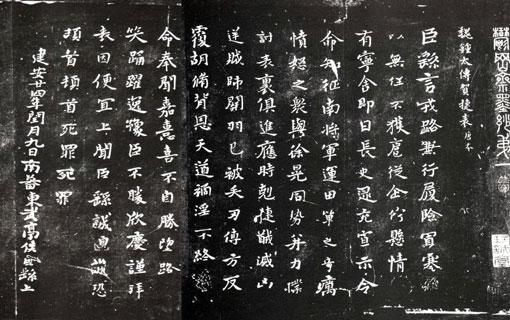 魏鍾太傅賀捷表唐本
臣繇言戎路兼行履險冒寒臣
以無任不獲扈從企佇懸情
有寧舍即日長史逯充宣示令
命知征南將軍運田單之奇厲
憤怒之衆與徐晃同勢并力撲
討表裏俱進應時剋捷馘滅凶
逆賊帥關羽已被矢刃傅方反
覆胡脩背恩天道禍淫不終
命奉聞嘉憙喜不自勝望路
笑踊躍逸豫臣不勝欣慶謹拜
表因便宜上聞臣繇誠惶誠恐
頓首頓首死罪死罪
建安廿四年閏月九日南蕃東武亭侯臣繇上